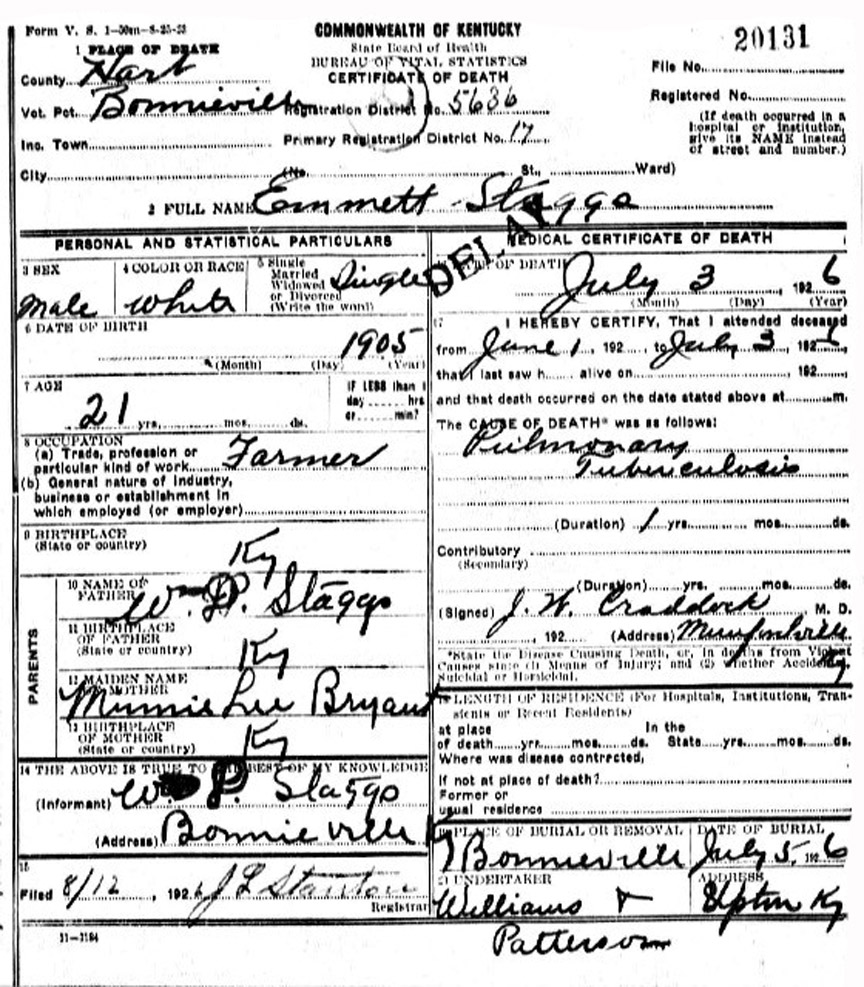 Form V. S. 1-50m-8-25-23
COMMONWEALTH OF KENTUCKY
State Board of Health
BUREAU OF VITAL STATISTICS
CERTIFICATE OF DEATH
20131
1 PLACE OF DEATH
County Hart
File No.
Vot. Pct. Bonnieville
Registration District No. 5636
Registered No.
Inc. Town
Primary Registration District No. 17
(If death occurred in a hospital or institution, give its NAME instead of street and number.)
City (No. St., Ward)
2 FULL NAME Emmett Staggs
DELAY
PERSONAL AND STATISTICAL PARTICULARS
3 SEX
Male
4 COLOR OR RACE
White
5 Single
Married
Widowed
or Divorced
(Write the word)
Single
6 DATE OF BIRTH
1905
(Month) (Day) (Year)
7 AGE
21 yrs. mos. ds.
IF LESS than 1
day hrs
or min?
8 OCCUPATION
(a) Trade, profession or
particular kind of work Farmer
(b) General nature of industry,
business or establishment in
which employed (or employer)
9 BIRTHPLACE
(State or country)
Ky
PARENTS
10 NAME OF
FATHER
Wm P. Staggs
11 BIRTHPLACE
OF FATHER
(State or country)
Ky
12 MAIDEN NAME
OF MOTHER
Minnie Lee Bryant
13 BIRTHPLACE
OF MOTHER
(State or country)
Ky
14 THE ABOVE IS TRUE TO THE BEST OF MY KNOWLEDGE
(Informant) W P. Staggs
(Address) Bonnieville K
15
Filed 8/12, 1926 J L Stanton
Registrar
11-1184
MEDICAL CERTIFICATE OF DEATH
DATE OF DEATH
July 3, 1926
(Month) (Day) (Year)
17 I HEREBY CERTIFY, That I attended deceased
from June 1, 192 to July 3, 1926,
that I last saw h alive on 192
and that death occurred on the date stated above at m.
The CAUSE OF DEATH* was as follows:
Pulmonary
Tuberculosis
(Duration) 1 yrs. mos. ds.
Contributory
(Secondary)
(Duration) yrs. mos. ds.
(Signed) J. W. Craddock M. D.
, 192 (Address) Munfordville Ky
*State the Disease Causing Death, or, in deaths from Violent
Causes state (1) Means of Injury; and (2) whether Accidental,
Suicidal or Homicidal.
18 LENGTH OF RESIDENCE (For Hospitals, Institutions, Tran-
sients or Recent Residents)
at place In the
of death yrs. mos. ds. State yrs. mos. ds.
Where was disease contracted,
If not at place of death?
Former or
usual residence
19 PLACE OF BURIAL OR REMOVAL
Bonnieville
DATE OF BURIAL
July 5, 1926
20 UNDERTAKER
Williams &
Patterson
ADDRESS
Upton Ky